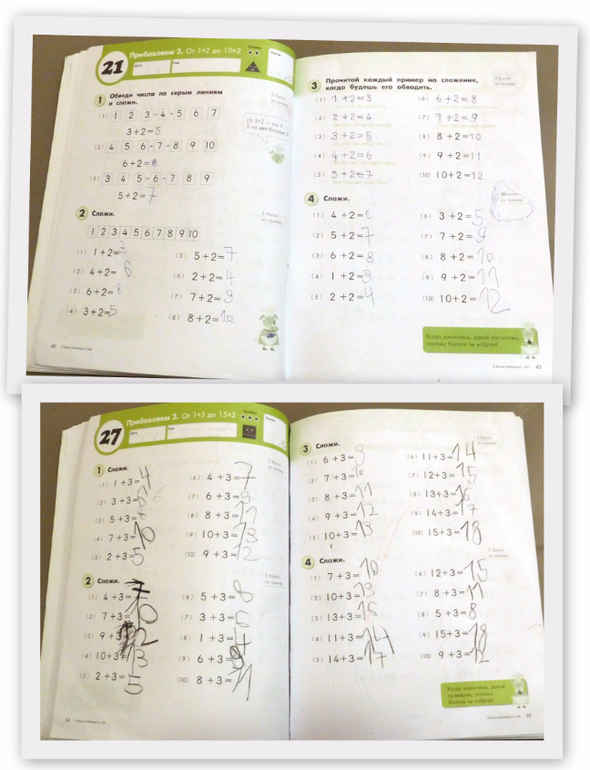 21 Прибавляем 2. От 1+2 до 10+2
1 Обведи числа по серым линиям
и сложи.
(1) 1 2 3 - 4 - 5 6 7
3+2=5
(2) 4 5 6 - 7 - 8 9 10
6+2=8
(3) 3 4 5 - 6 - 7 8 9
5+2=7
2 Сложи.
1 2 3 4 5 6 7 8 9 10
(1) 1+2=3
(2) 4+2=6
(3) 6+2=8
(4) 3+2=5
(5) 5+2=7
(6) 2+2=4
(7) 7+2=9
(8) 8+2=10
3 Прочитай каждый пример на сложение,
когда будешь его обводить.
(1) 1+2=3
(2) 2+2=4
(3) 3+2=5
(4) 4+2=6
(5) 5+2=7
(6) 6+2=8
(7) 7+2=9
(8) 8+2=10
(9) 9+2=11
(10) 10+2=12
4 Сложи.
(1) 4+2=6
(2) 5+2=7
(3) 6+2=8
(4) 1+2=3
(5) 2+2=4
(6) 3+2=5
(7) 7+2=9
(8) 8+2=10
(9) 9+2=11
(10) 10+2=12
Когда закончишь, давай посчитаем,
сколько баллов ты набрал!
27 Прибавляем 3. От 1+3 до 15+3
1 Сложи.
(1) 1+3=4
(2) 3+3=
(3) 5+3=
(4) 7+3=10
(5) 2+3=5
(6) 4+3=7
(7) 6+3=9
(8) 8+3=11
(9) 10+3=13
(10) 9+3=12
2 Сложи.
(1) 4+3=7
(2) 7+3=10
(3) 9+3=12
(4) 10+3=13
(5) 2+3=5
(6) 5+3=8
(7) 3+3=6
(8) 1+3=4
(9) 6+3=9
(10) 8+3=11
3 Сложи.
(1) 6+3=9
(2) 7+3=10
(3) 8+3=11
(4) 9+3=12
(5) 10+3=13
(6) 11+3=14
(7) 12+3=15
(8) 13+3=16
(9) 14+3=17
(10) 15+3=18
4 Сложи.
(1) 7+3=10
(2) 10+3=13
(3) 13+3=16
(4) 11+3=14
(5) 14+3=17
(6) 12+3=15
(7) 8+3=11
(8) 5+3=8
(9) 15+3=18
(10) 9+3=12
Когда закончишь, давай
проверим, сколько
баллов ты набрал!